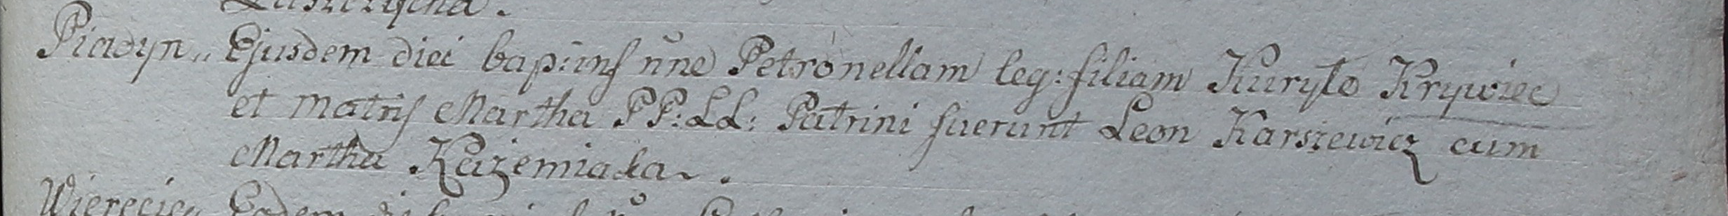 Piadyn,, Ejusdem diei bap: inf nn̄e Petronellam leg: filiam Kuryło Krywiec
et matris Martha PP: LL: Patrini fuerunt Leon Karszewicz cum
Martha Każemiaka.
Eadem